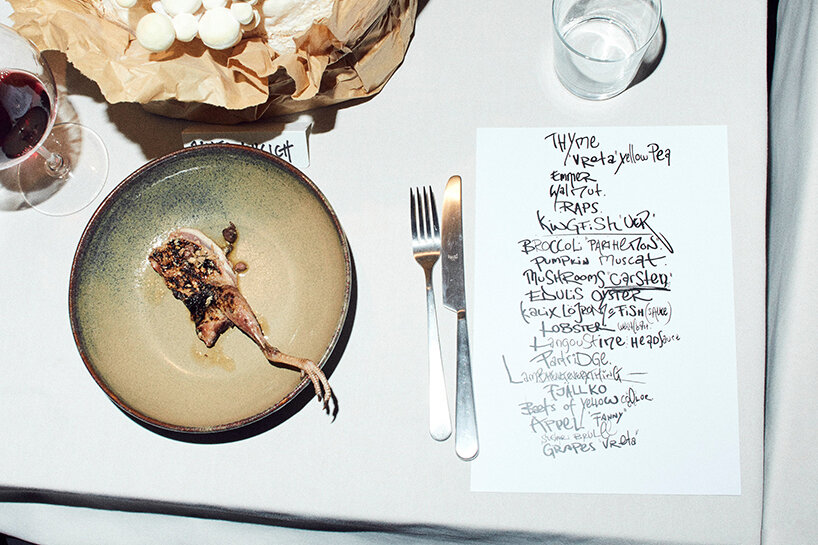 THyme
Vreta'yellow Pea
EMMER
Walnut.
RAPS.
KINGFISH 'UER'
BROCCOLI 'PARTHENON'
PUMPKIN MUSCAT
MUSHROOMS 'Carsten'
EDULIS OYSTER
Kalix Löjrom FISH (SAUCE)
LOBSTER
Langoustine HeadSauce
PatriDGE.
FJÄLLKO
Beets of yellow color
APPEL "FANNY"
GRAPES 'Vreta'